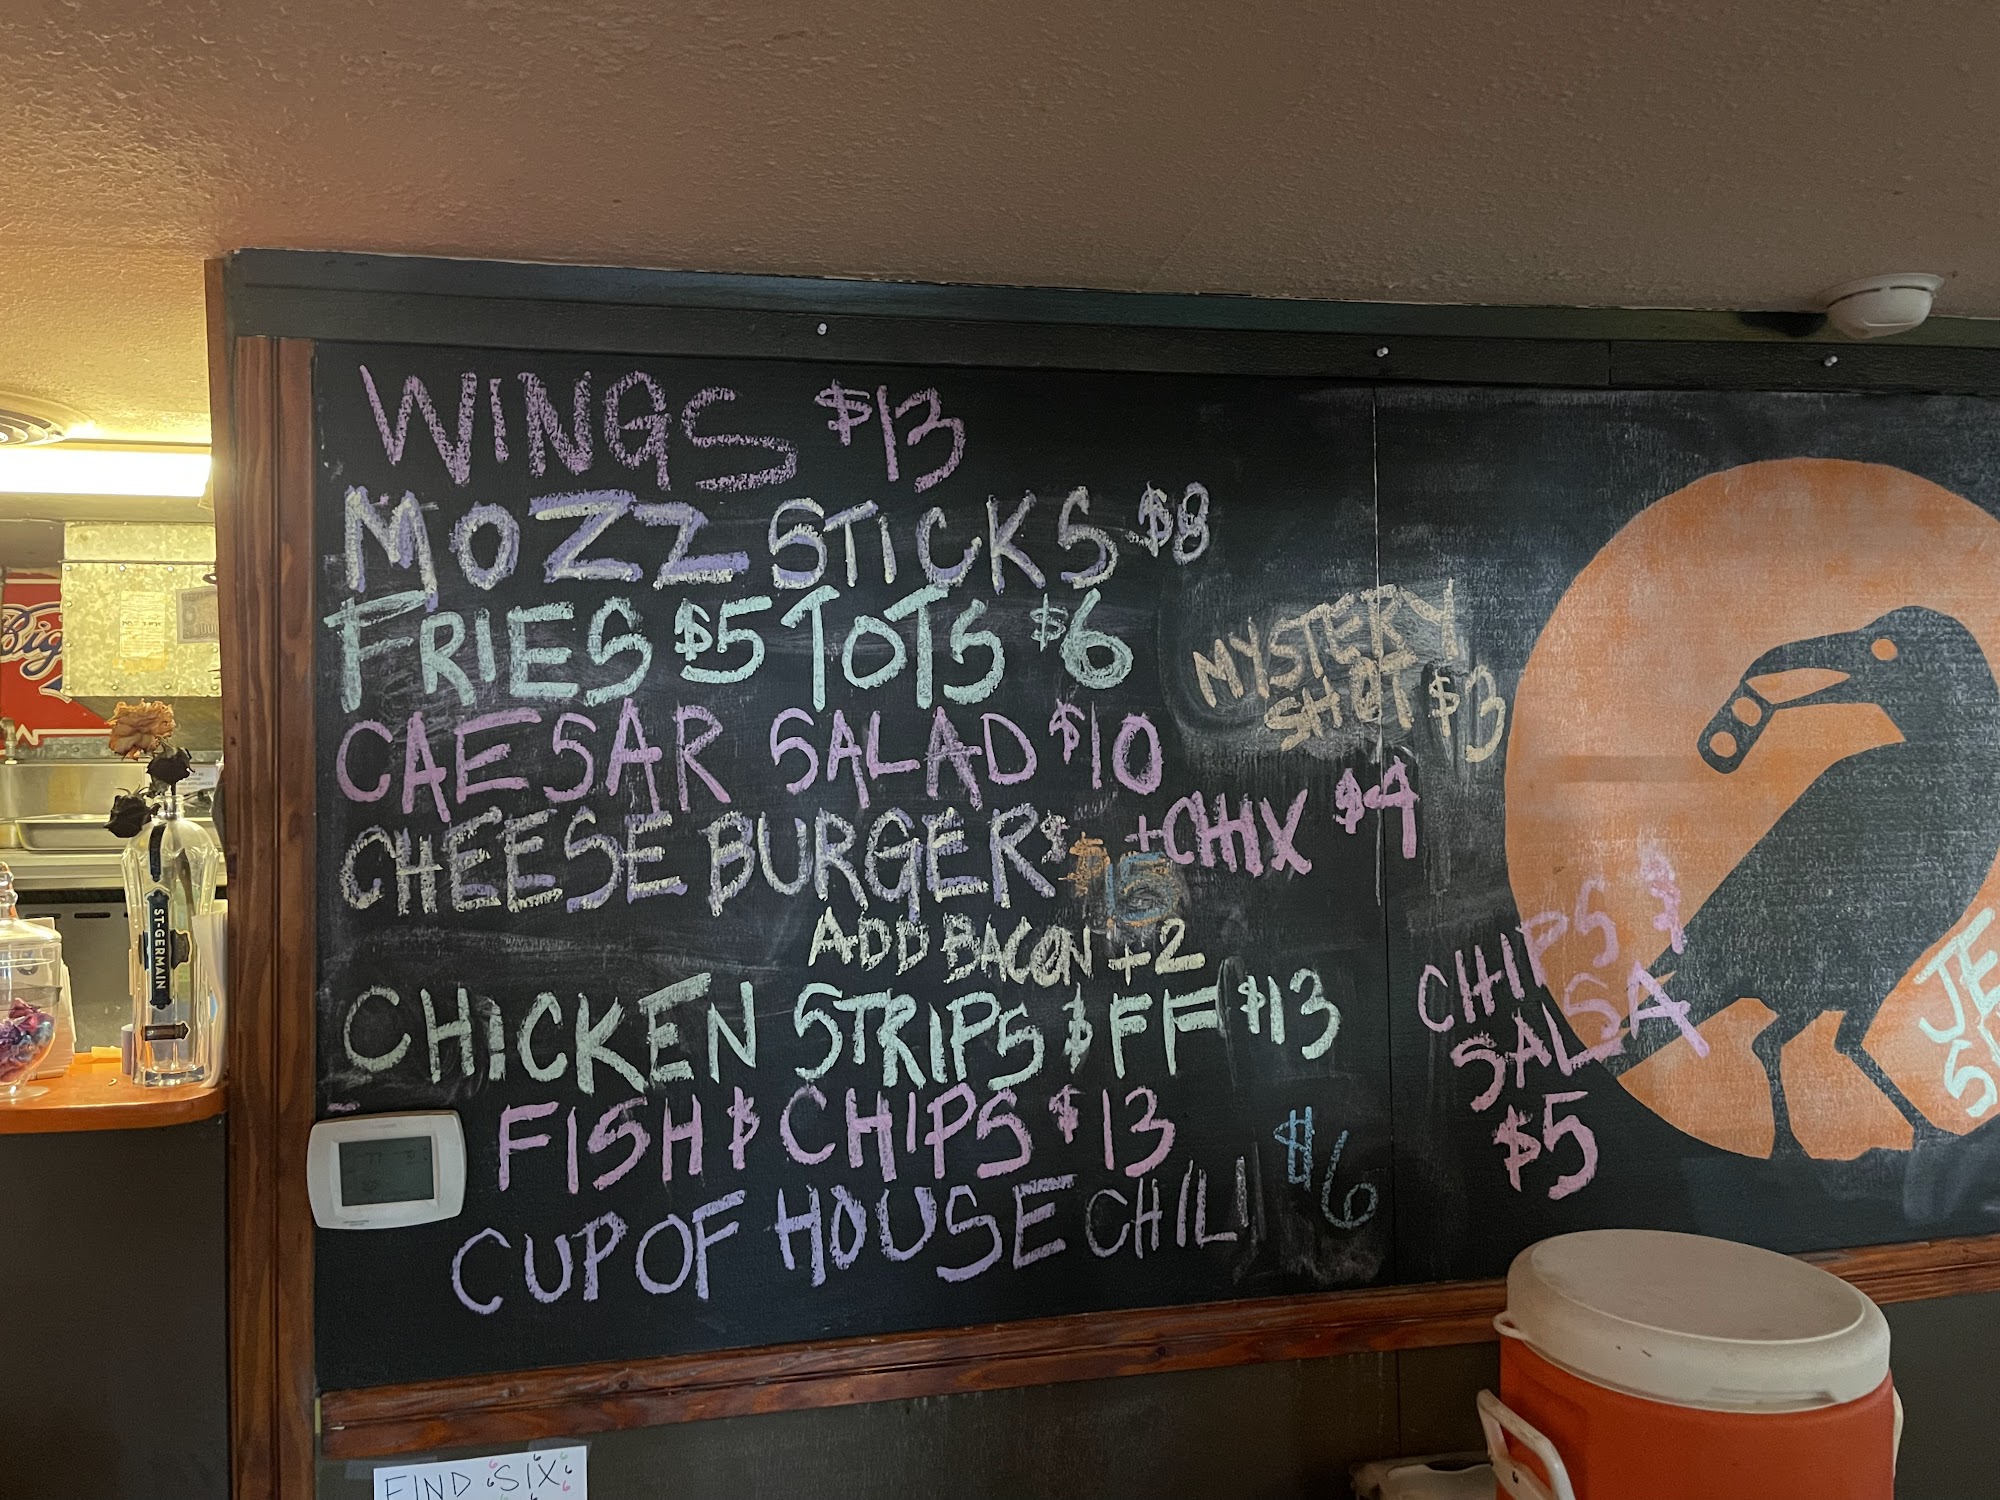 WINGS $13
MOZZ STICKS $8
FRIES $5 TOTS $6
CAESAR SALAD $10
+CHIX $4
CHEESE BURGER $15
ADD BACON +2
CHICKEN STRIPS & FF $13
FISH & CHIPS $13
CUP OF HOUSE CHILI $6
MYSTERY
SHOT $3
CHIPS &
SALSA
$5
JE
S
Big
ST-GERMAIN
FIND SIX